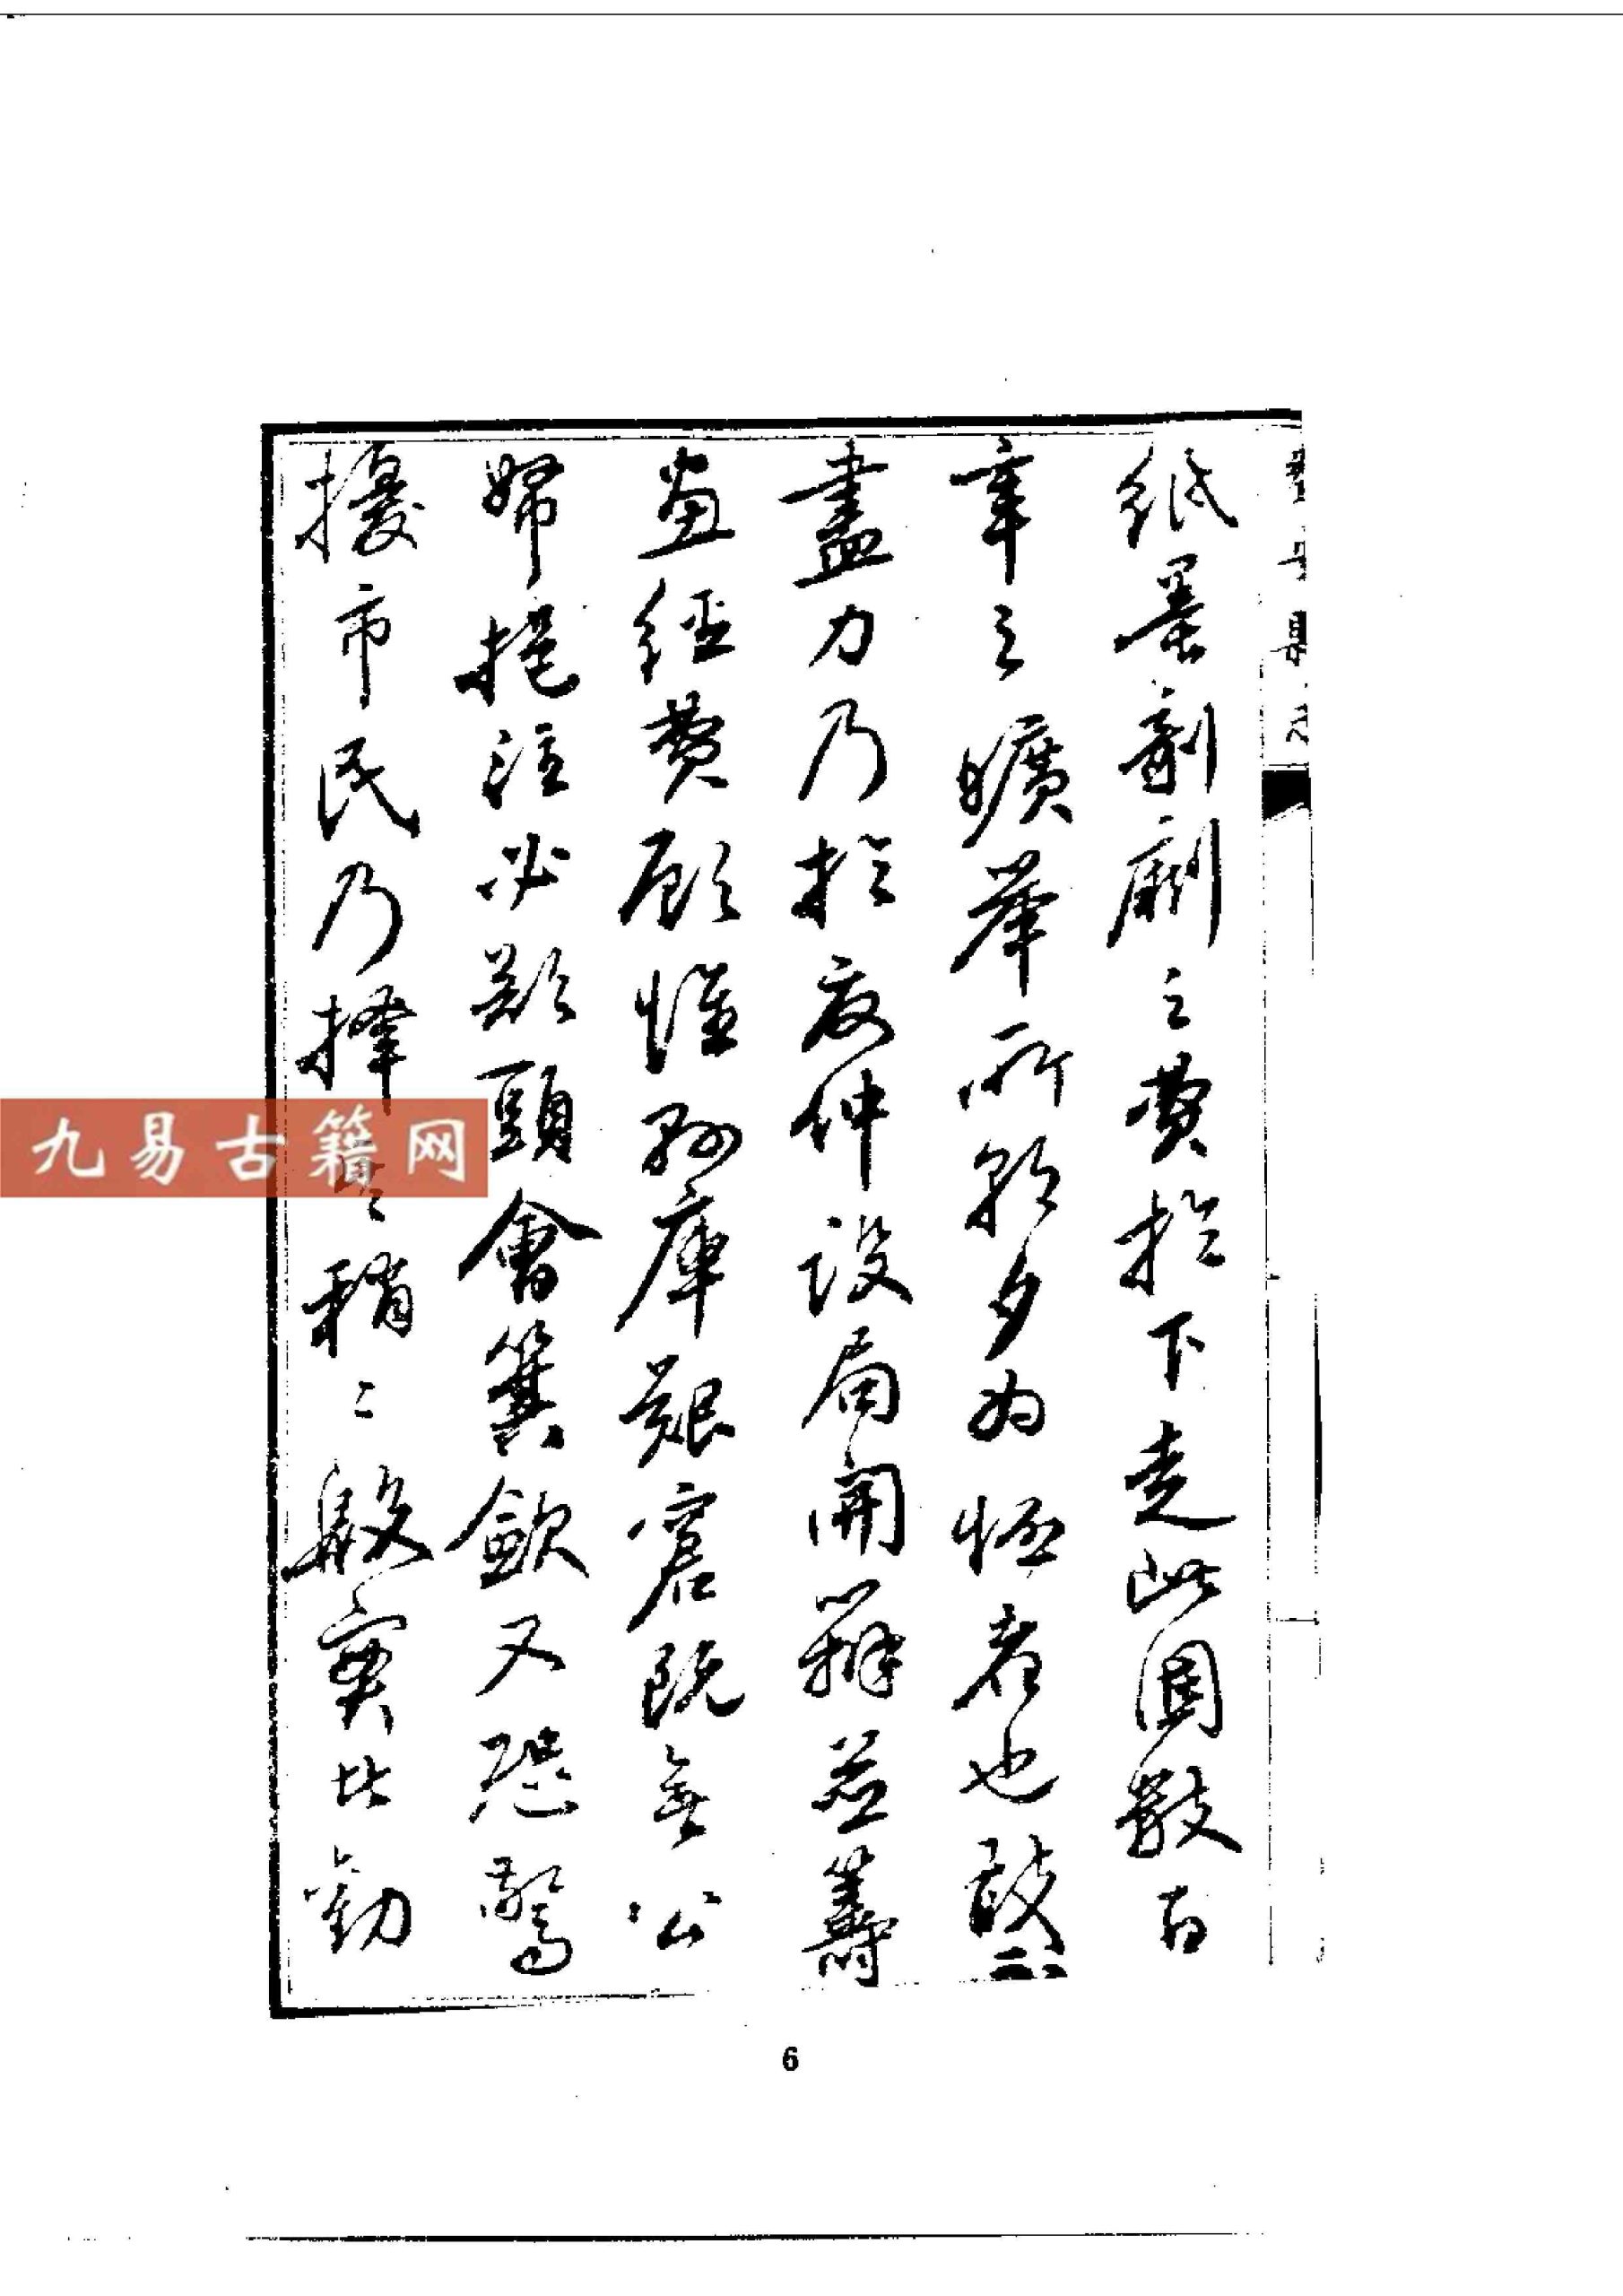 紙墨剞劂之費於下走此固數百
年之曠舉所朝夕為恆者也敢不
盡力乃於夏仲設局開辦並籌
畫經費顧惟縣庫艱窘既無公
帑挹注必欲頭會箕斂又恐驚
擾市民乃擇其稍稍殷實比勸
6
九易古籍网